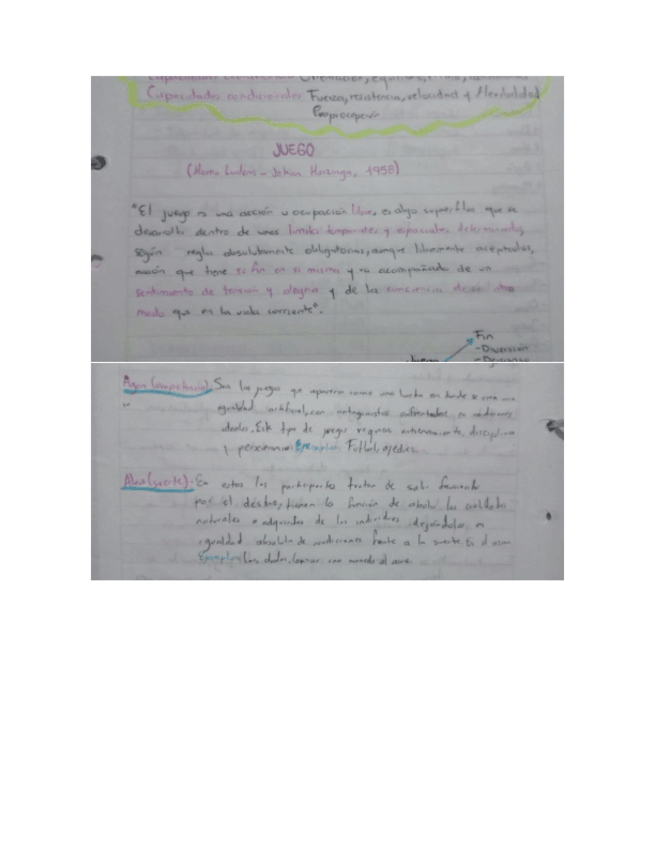 Capacidades condicionales Fuerza, resistencia, velocidad y flexibilidad
Propiocepción
JUEGO
(Homo Ludens - Johan Huizinga, 1958)
"El juego es una acción u ocupación libre, es algo superfluo que se
desarrolla dentro de unos limites temporales y espaciales determinados,
según reglas absolutamente obligatorias, aunque libremente aceptadas,
acción que tiene su fin en si misma y va acompañada de un
sentimiento de tensión y alegria y de la conciencia de ser de otro
modo que en la vida corriente".
Fin
- Diversión
Juego
Agon (competencia). Son los juegos que aparecen como una lucha en donde se crea una
igualdad artificial, con antagonistas enfrentados en condiciones
ideales. Este tipo de juegos requiere entrenamiento, disciplina
y perseverancia Ejemplos: Futbol, ajedrez
Alea (suerte). En estos los participantes tratan de salir favorecido
por el destino, tienen la función de abolir las cualidades
naturales o adquiridas de los individuos dejandolos en
igualdad absoluta de condiciones frente a la suerte. Es el azar
Ejemplos Los dados, lanzar una moneda al aire